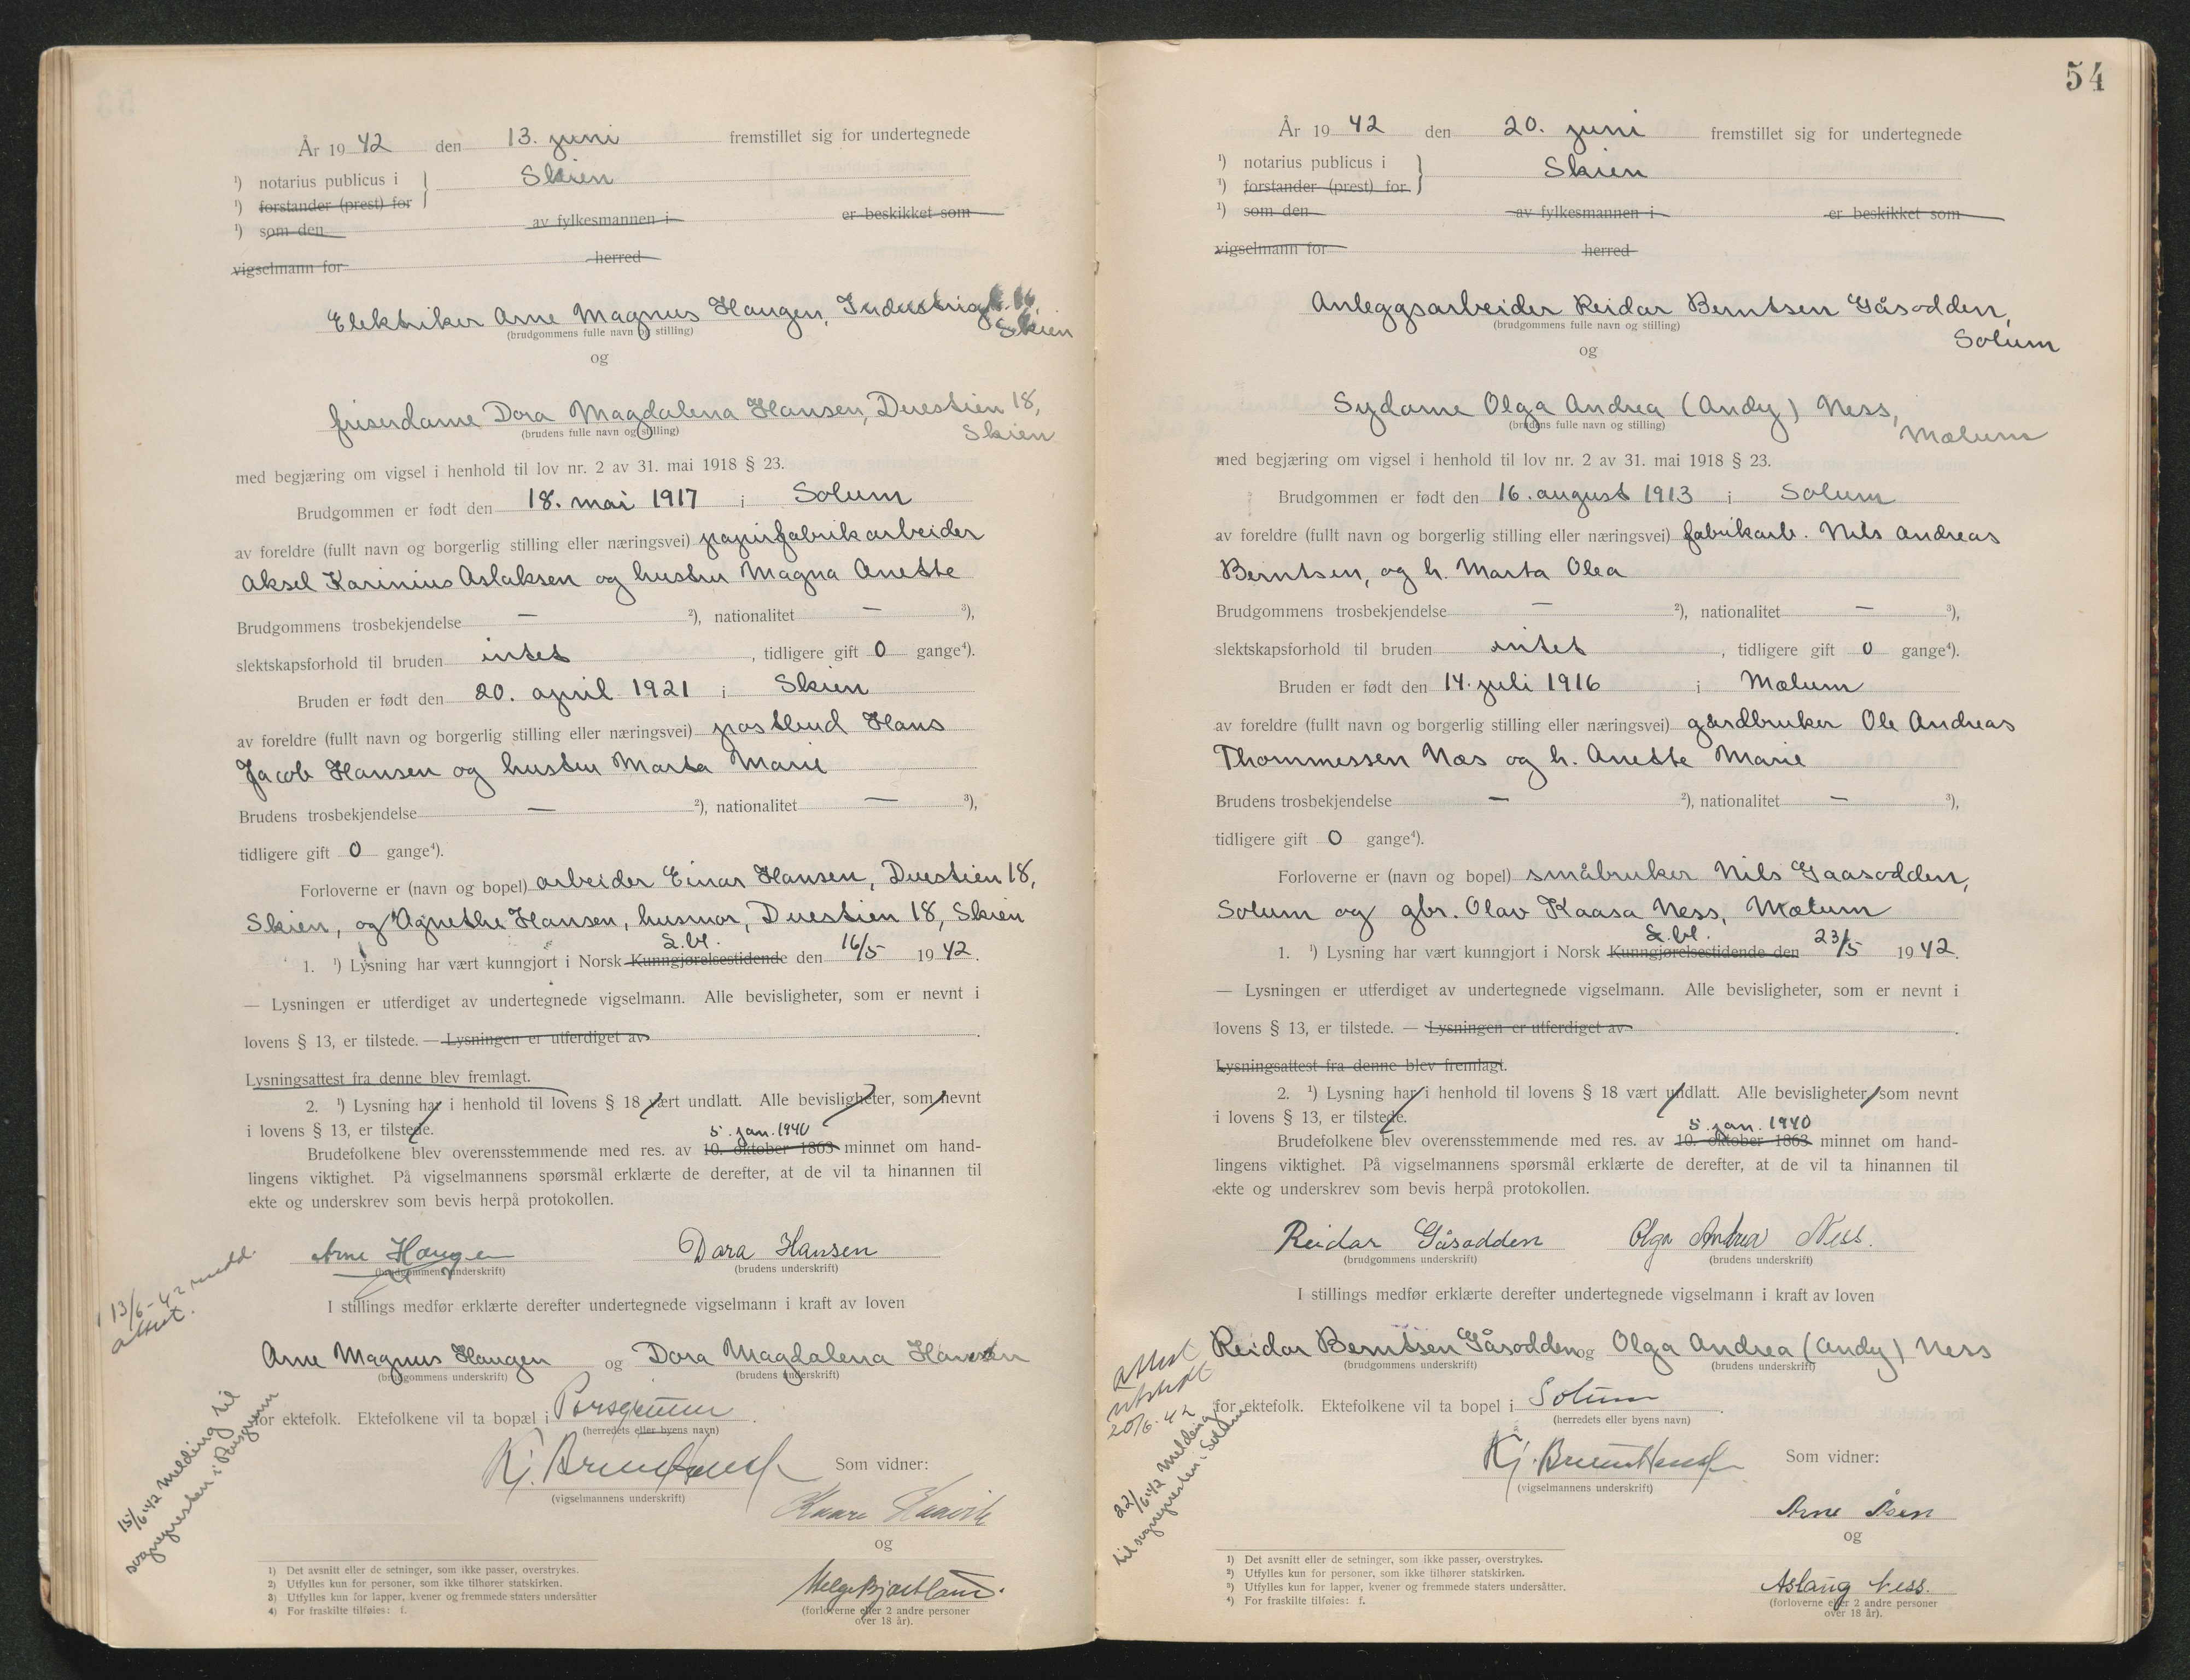 År 1942 den 13. juni fremstillet sig for undertegnede
¹) notarius publicus i } Skien
¹) forstander (prest) for
¹) som den av fylkesmannen i er beskikket som
vigselmann for herred
Elektriker Arne Magnus Haugen, Industrigt. 16,
Skien
(brudgommens fulle navn og stilling)
og
friserdame Dora Magdalena Hansen, Duestien 18,
Skien
(brudens fulle navn og stilling)
med begjæring om vigsel i henhold til lov nr. 2 av 31. mai 1918 § 23.
Brudgommen er født den 18. mai 1917 i Solum
av foreldre (fullt navn og borgerlig stilling eller næringsvei) papirfabrikarbeider
Aksel Karinius Aslaksen og hustru Magna Anette
Brudgommens trosbekjendelse — ²), nationalitet — ³),
slektskapsforhold til bruden intet, tidligere gift 0 gange⁴).
Bruden er født den 20. april 1921 i Skien
av foreldre (fullt navn og borgerlig stilling eller næringsvei) postbud Hans
Jacob Hansen og hustru Marta Marie
Brudens trosbekjendelse — ²), nationalitet — ³),
tidligere gift 0 gange⁴).
Forloverne er (navn og bopel) arbeider Einar Hansen, Duestien 18,
Skien, og Agnethe Hansen, husmor, Duestien 18, Skien
S.bl.
1. ¹) Lysning har vært kunngjort i Norsk Kunngjørelsestidende den 16/5 1942.
— Lysningen er utferdiget av undertegnede vigselmann. Alle bevisligheter, som er nevnt i
lovens § 13, er tilstede. — Lysningen er utferdiget av
Lysningsattest fra denne blev fremlagt.
2. ¹) Lysning har i henhold til lovens § 18 vært undlatt. Alle bevisligheter, som nevnt
i lovens § 13, er tilstede.
5. jan. 1940
Brudefolkene blev overensstemmende med res. av 10. oktober 1863 minnet om hand-
lingens viktighet. På vigselmannens spørsmål erklærte de derefter, at de vil ta hinannen til
ekte og underskrev som bevis herpå protokollen.
Arne Haugen Dora Hansen
(brudgommens underskrift) (brudens underskrift)
13/6-42 medd.
attest.
I stillings medfør erklærte derefter undertegnede vigselmann i kraft av loven
Arne Magnus Haugen og Dora Magdalena Hansen
(brudgommens underskrift) (brudens underskrift)
for ektefolk. Ektefolkene vil ta bopæl i Porsgrunn.
(herredets eller byens navn)
15/6 42 Melding til
sognepresten i Porsgrunn
Som vidner:
(vigselmannens underskrift)
Kaare Haavik
og
(forloverne eller 2 andre personer
over 18 år).
1) Det avsnitt eller de setninger, som ikke passer, overstrykes.
2) Utfylles kun for personer, som ikke tilhører statskirken.
3) Utfylles kun for lapper, kvener og fremmede staters undersåtter
4) For fraskilte tilføies: f.
54
År 1942 den 20. juni fremstillet sig for undertegnede
¹) notarius publicus i } Skien
¹) forstander (prest) for
¹) som den av fylkesmannen i er beskikket som
vigselmann for herred
Anleggsarbeider Reidar Berntsen Gåsodden,
Solum
(brudgommens fulle navn og stilling)
og
Sydame Olga Andrea (Andy) Ness,
Mælum
(brudens fulle navn og stilling)
med begjæring om vigsel i henhold til lov nr. 2 av 31. mai 1918 § 23.
Brudgommen er født den 16. august 1913 i Solum
av foreldre (fullt navn og borgerlig stilling eller næringsvei) fabrikarb. Nils Andreas
Berntsen, og h. Marta Olea
Brudgommens trosbekjendelse — ²), nationalitet — ³),
slektskapsforhold til bruden intet, tidligere gift 0 gange⁴).
Bruden er født den 14. juli 1916 i Mælum
av foreldre (fullt navn og borgerlig stilling eller næringsvei) gårdbruker Ole Andreas
Thommessen Næs og h. Anette Marie
Brudens trosbekjendelse — ²), nationalitet — ³),
tidligere gift 0 gange⁴).
Forloverne er (navn og bopel) småbruker Nils Gaasodden,
Solum og gbr. Olav Kaasa Ness, Mælum
S.bl.
1. ¹) Lysning har vært kunngjort i Norsk Kunngjørelsestidende den 23/5 1942.
— Lysningen er utferdiget av undertegnede vigselmann. Alle bevisligheter, som er nevnt i
lovens § 13, er tilstede. — Lysningen er utferdiget av .
Lysningsattest fra denne blev fremlagt.
2. ¹) Lysning har i henhold til lovens § 18 vært undlatt. Alle bevisligheter, som nevnt
i lovens § 13, er tilstede.
5. jan. 1940
Brudefolkene blev overensstemmende med res. av 10. oktober 1863 minnet om hand-
lingens viktighet. På vigselmannens spørsmål erklærte de derefter, at de vil ta hinannen til
ekte og underskrev som bevis herpå protokollen.
Reidar Gåsodden Olga Andrea Ness.
(brudgommens underskrift) (brudens underskrift)
I stillings medfør erklærte derefter undertegnede vigselmann i kraft av loven
Reidar Berntsen Gåsodden og Olga Andrea (Andy) Ness
(brudgommens underskrift) (brudens underskrift)
attest
utstedt
20/6-42
for ektefolk. Ektefolkene vil ta bopel i Solum.
(herredets eller byens navn)
22/6 42 Melding
til sognepresten i Solum
Som vidner:
(vigselmannens underskrift)
Arne Åsen
og
Aslaug Ness.
(forloverne eller 2 andre personer
over 18 år).
¹) Det avsnitt eller de setninger, som ikke passer, overstrykes.
²) Utfylles kun for personer, som ikke tilhører statskirken.
³) Utfylles kun for lapper, kvener og fremmede staters undersåtter.
⁴) For fraskilte tilføies: f.